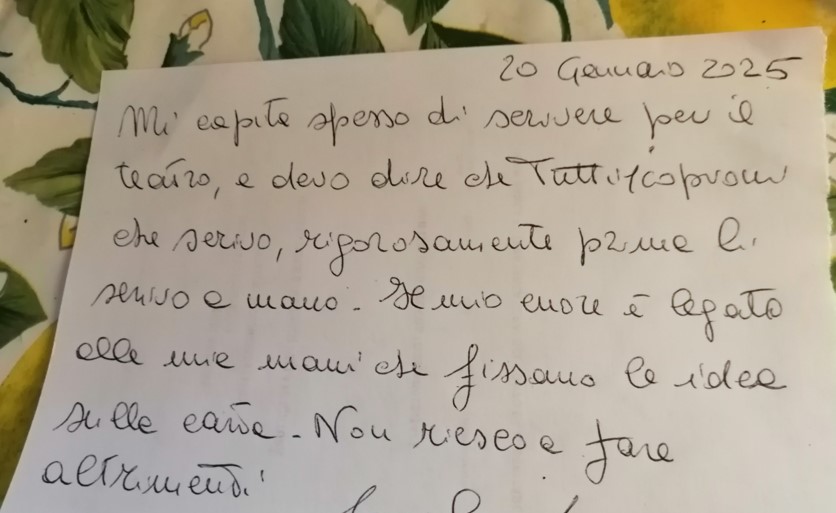 20 Gennaio 2025
Mi capita spesso di scrivere per il
teatro, e devo dire che Tutti i copioni
che scrivo, rigorosamente prima li
scrivo a mano. Il mio cuore è legato
alle mie mani che fissano le idee
sulla carta. Non riesco a fare
altrimenti!